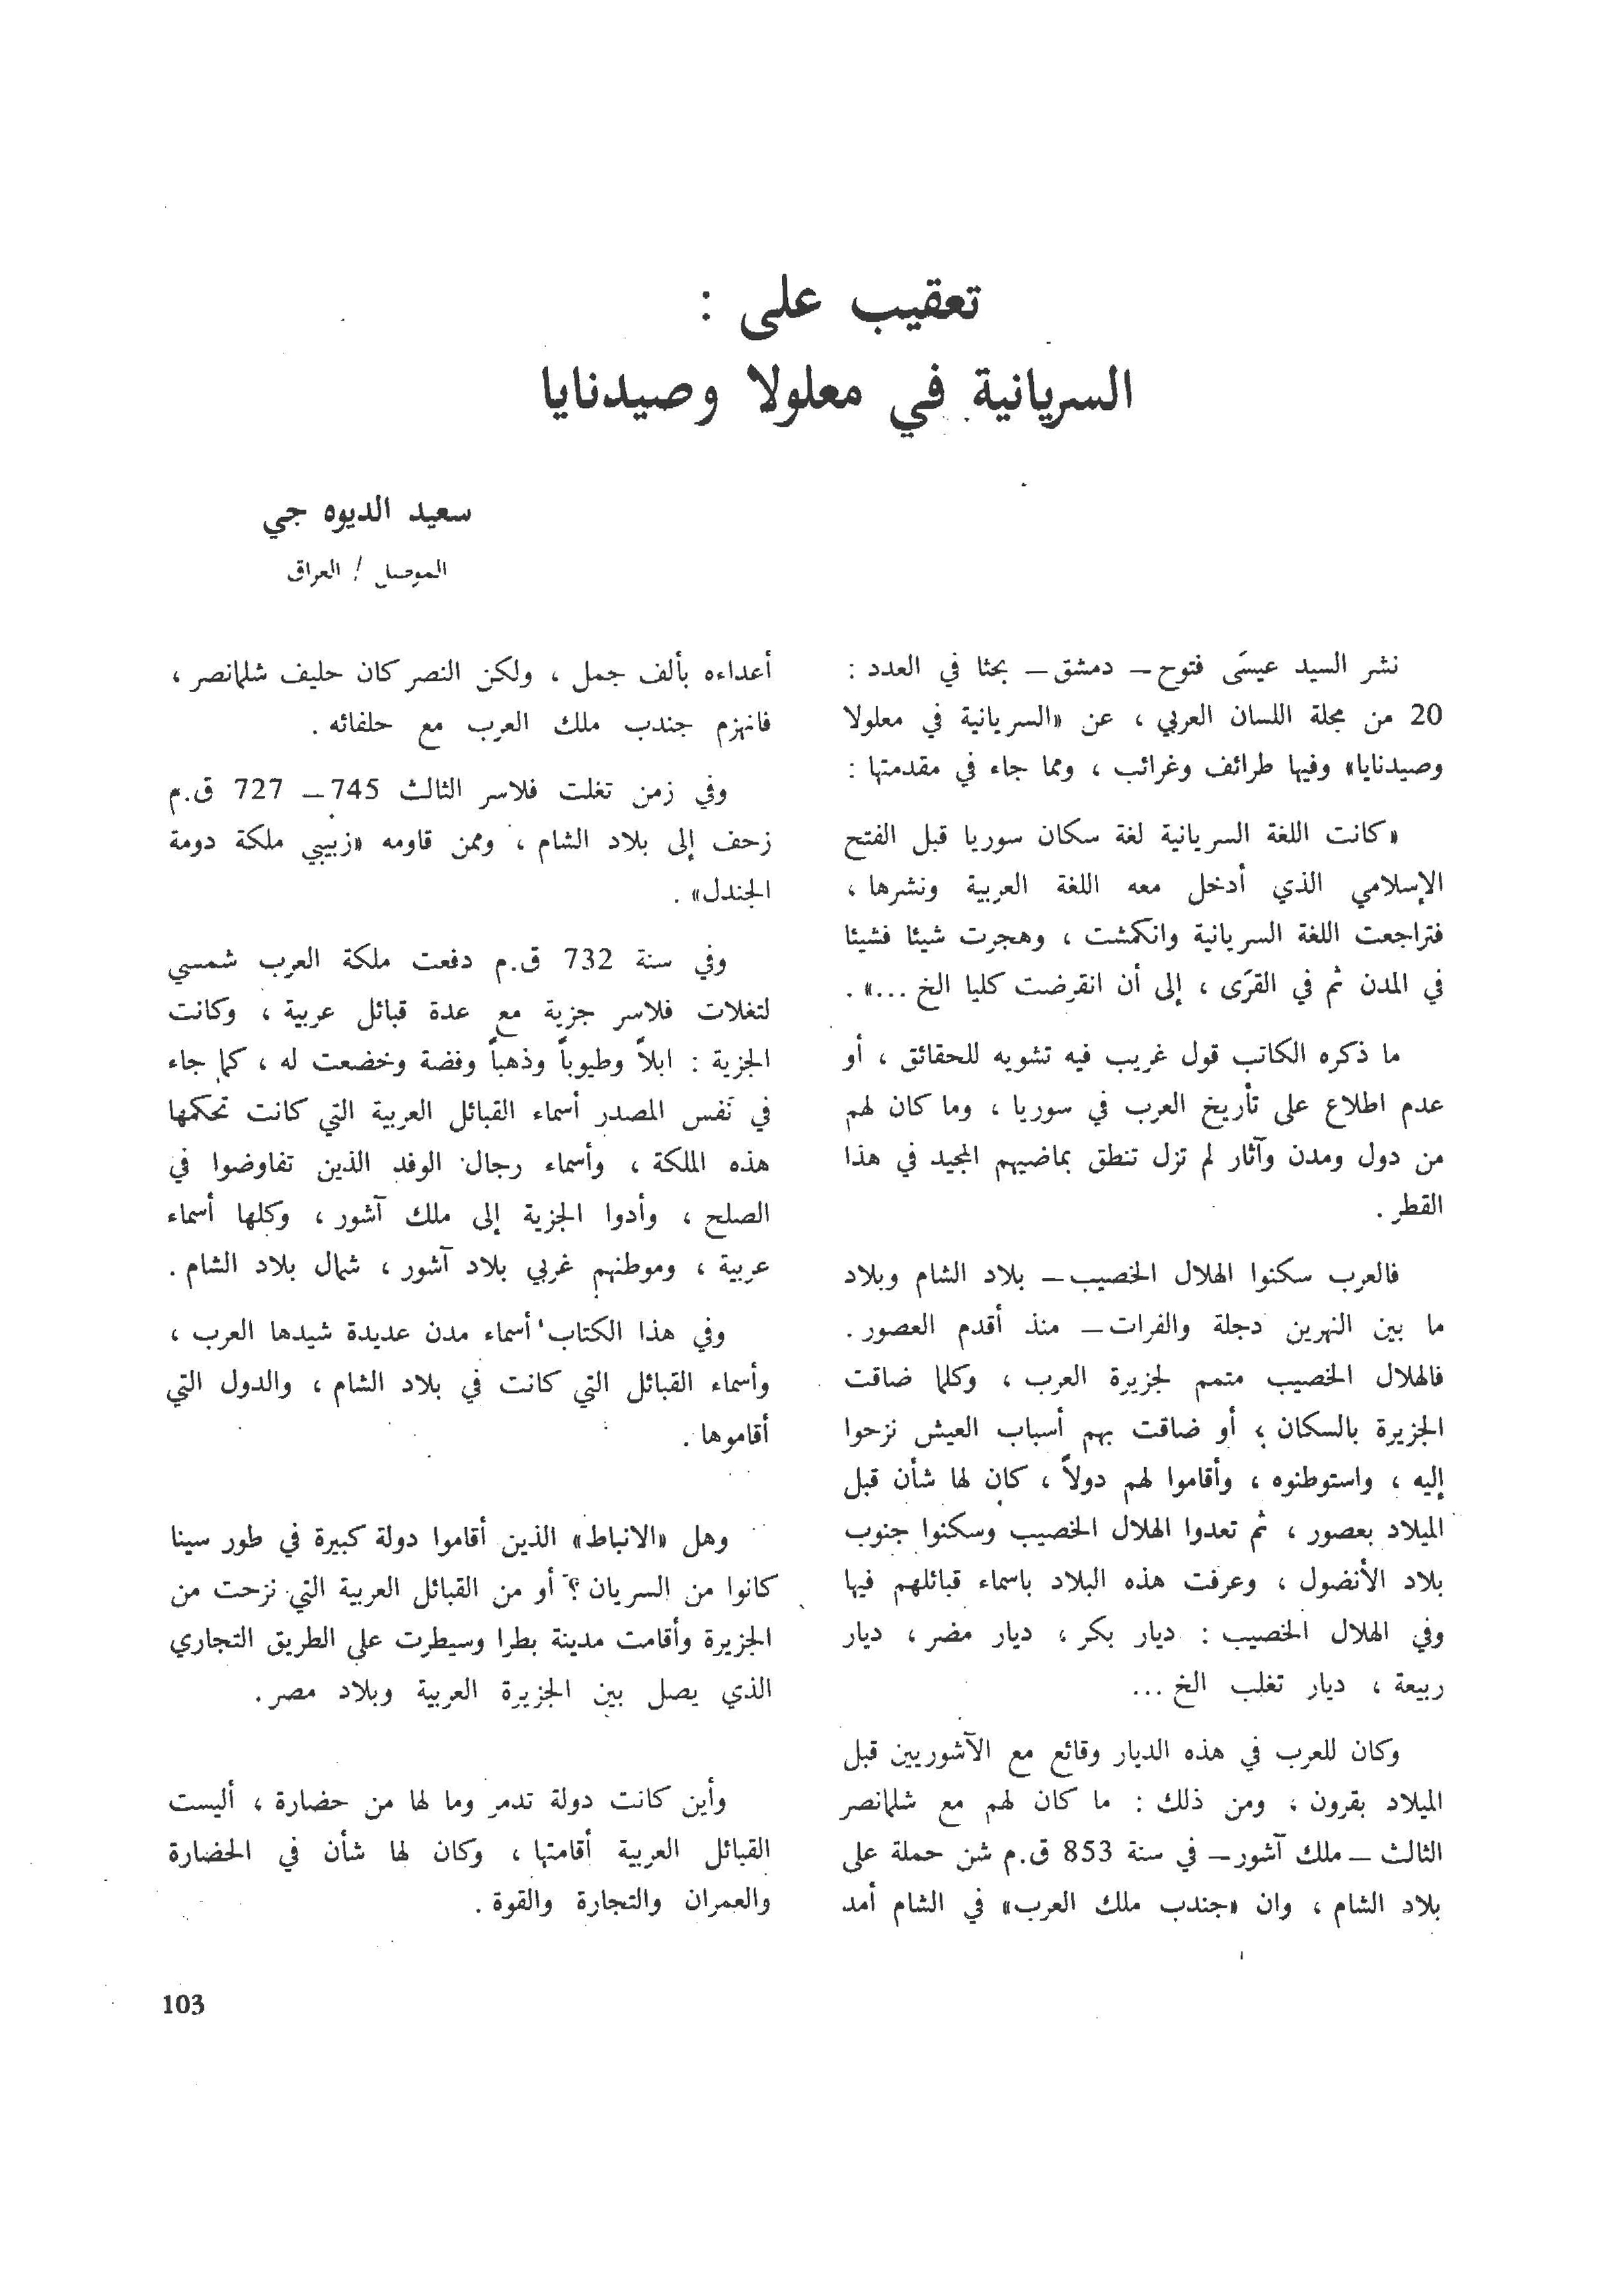 تعقيب على :
السريانية في معلولا وصيدنايا
سعيد الديوه جي
الموصل / العراق
نشر السيد عيسَى فتوح – دمشق – بحثا في العدد :
20 من مجلة اللسان العربي ، عن «السريانية في معلولا
وصيدنايا» وفيها طرائف وغرائب ، ومما جاء في مقدمتها :
«كانت اللغة السريانية لغة سكان سوريا قبل الفتح
الإسلامي الذي أدخل معه اللغة العربية ونشرها ،
فتراجعت اللغة السريانية وانكمشت ، وهجرت شيئا فشيئا
في المدن ثم في القرَى ، إلى أن انقرضت كليا الخ ...» .
ما ذكره الكاتب قول غريب فيه تشويه للحقائق ، أو
عدم اطلاع على تأريخ العرب في سوريا ، وما كان لهم
من دول ومدن وآثار لم تزل تنطق بماضيهم المجيد في هذا
القطر .
فالعرب سكنوا الهلال الخصيب – بلاد الشام وبلاد
ما بين النهرين دجلة والفرات – منذ أقدم العصور .
فالهلال الخصيب متمم لجزيرة العرب ، وكلما ضاقت
الجزيرة بالسكان ، أو ضاقت بهم أسباب العيش نزحوا
إليه ، واستوطنوه ، وأقاموا لهم دولاً ، كان لها شأن قبل
الميلاد بعصور ، ثم تعدوا الهلال الخصيب وسكنوا جنوب
بلاد الأنضول ، وعرفت هذه البلاد باسماء قبائلهم فيها
وفي الهلال الخصيب : ديار بكر ، ديار مضر ، ديار
ربيعة ، ديار تغلب الخ ...
وكان للعرب في هذه الديار وقائع مع الآشوريين قبل
الميلاد بقرون ، ومن ذلك : ما كان لهم مع شلمانصر
الثالث – ملك آشور – في سنة 853 ق.م شن حملة على
بلاد الشام ، وان «جندب ملك العرب» في الشام أمد
أعداءه بألف جمل ، ولكن النصر كان حليف شلمانصر ،
فانهزم جندب ملك العرب مع حلفائه .
وفي زمن تغلت فلاسر الثالث 745 – 727 ق.م
زحف إلى بلاد الشام ، وممن قاومه «زبيبي ملكة دومة
الجندل» .
وفي سنة 732 ق.م دفعت ملكة العرب شمسي
لتغلات فلاسر جزية مع عدة قبائل عربية ، وكانت
الجزية : ابلاً وطيوباً وذهباً وفضة وخضعت له ، كما جاء
في نَفس المصدر أسماء القبائل العربية التي كانت تحكمها
هذه الملكة ، وأسماء رجال الوفد الذين تفاوضوا في
الصلح ، وأدوا الجزية إلى ملك آشور ، وكلها أسماء
عربية ، وموطنهم غربي بلاد آشور ، شمال بلاد الشام .
وفي هذا الكتاب أسماء مدن عديدة شيدها العرب ،
وأسماء القبائل التي كانت في بلاد الشام ، والدول التي
أقاموها .
وهل «الانباط» الذين أقاموا دولة كبيرة في طور سينا
كانوا من السريان ؟ أو من القبائل العربية التي نزحت من
الجزيرة وأقامت مدينة بطرا وسيطرت على الطريق التجاري
الذي يصل بين الجزيرة العربية وبلاد مصر .
وأين كانت دولة تدمر وما لها من حضارة ، أليست
القبائل العربية أقامتها ، وكان لها شأن في الحضارة
والعمران والتجارة والقوة .
103